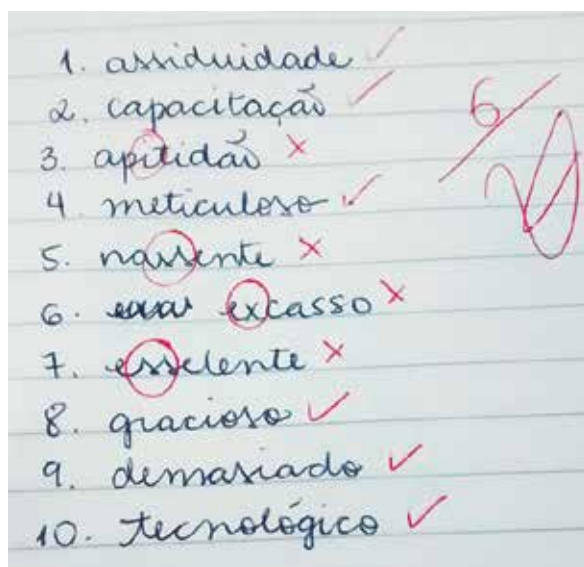 1. assiduidade
2. capacitação
3. apitidão
4. meticuloso
5. nassente
6. excasso
7. esselente
8. gracioso
9. demasiado
10. tecnológico
6/